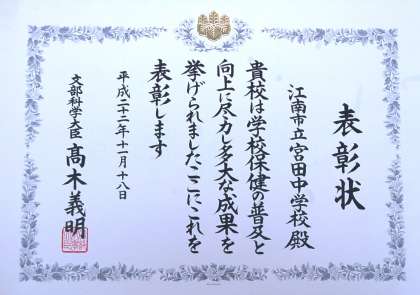 表彰状
江南市立宮田中学校殿
貴校は学校保健の普及と
向上に尽力し多大な成果を
挙げられましたここにこれを
表彰します
平成二十二年十一月十八日
文部科学大臣 髙木義明